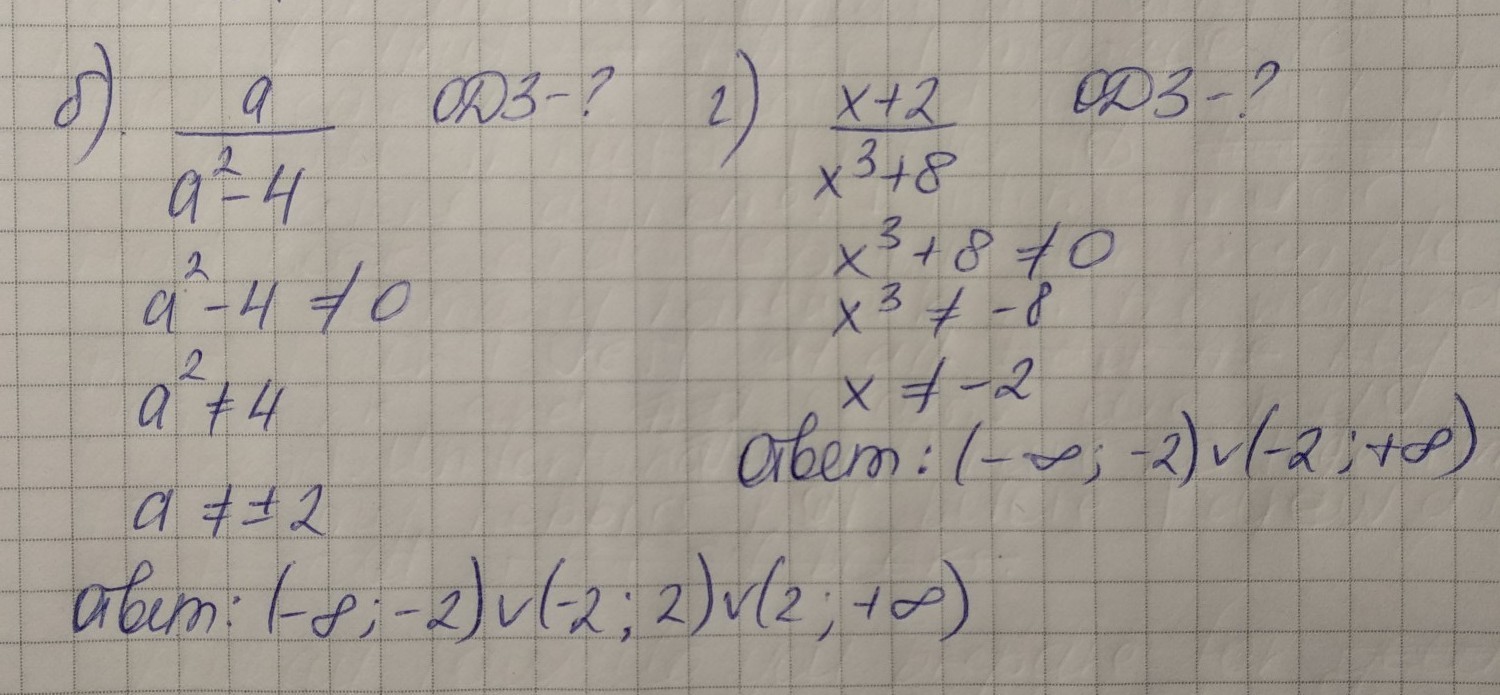 б). a/(a²-4) ОДЗ-?
a²-4 ≠ 0
a² ≠ 4
a ≠ ± 2
Ответ: (-∞; -2)∨(-2; 2)∨(2; +∞)
г) x+2/(x³+8) ОДЗ-?
x³+8 ≠ 0
x³ ≠ -8
x ≠ -2
Ответ: (-∞; -2)∨(-2; +∞)